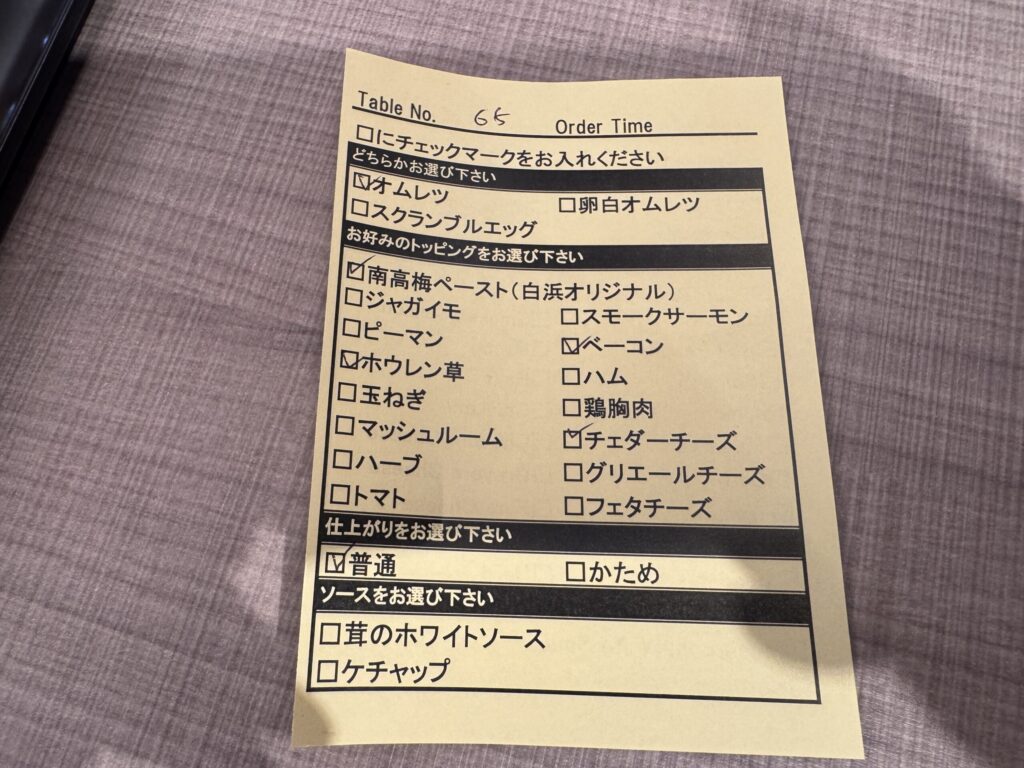 Table No. 65 Order Time
□にチェックマークをお入れください
どちらかお選び下さい
☑オムレツ □卵白オムレツ
□スクランブルエッグ
お好みのトッピングをお選び下さい
☑南高梅ペースト（白浜オリジナル）
□ジャガイモ □スモークサーモン
□ピーマン ☑ベーコン
☑ホウレン草 □ハム
□玉ねぎ □鶏胸肉
□マッシュルーム ☑チェダーチーズ
□ハーブ □グリエールチーズ
□トマト □フェタチーズ
仕上がりをお選び下さい
☑普通 □かため
ソースをお選び下さい
□茸のホワイトソース
□ケチャップ